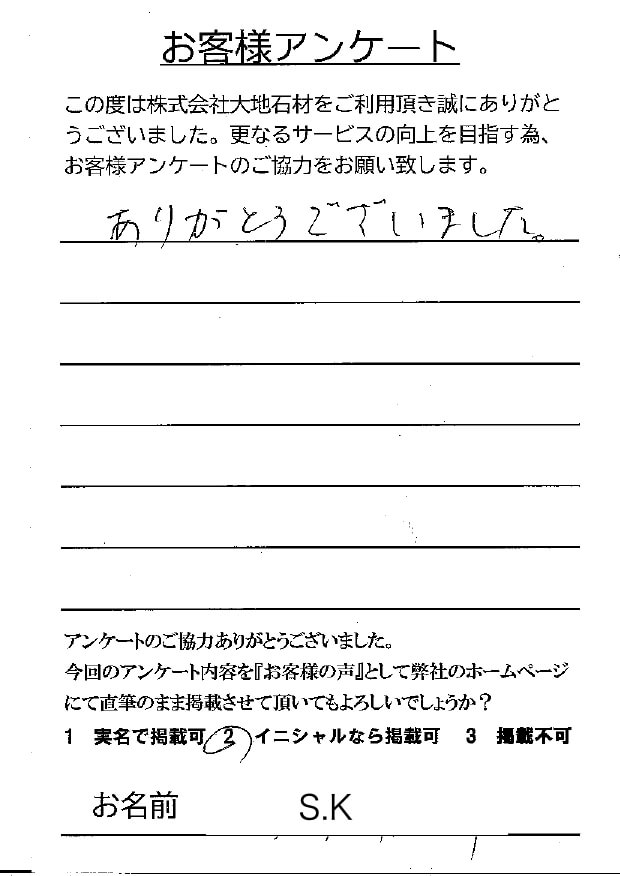 お客様アンケート
この度は株式会社大地石材をご利用頂き誠にありがと
うございました。更なるサービスの向上を目指す為、
お客様アンケートのご協力をお願い致します。
ありがとうございました。
アンケートのご協力ありがとうございました。
今回のアンケート内容を『お客様の声』として弊社のホームページ
にて直筆のまま掲載させて頂いてもよろしいでしょうか？
1 実名で掲載可 2 イニシャルなら掲載可 3 掲載不可
お名前 S.K